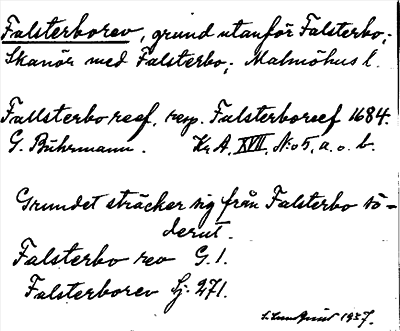 Falsterborev, grund utanför Falsterbo;
Skanör med Falsterbo; Malmöhus l.
Fallsterbo reef, resp. Falsterboreef 1684.
G. Bührmann. Kr A, XVII, No 5, a. o. b.
Grundet sträcker sig från Falsterbo sö-
derut.
Falsterbo rev G. 1.
Falsterborev Sj. 271.
S. Lundquist 1927.